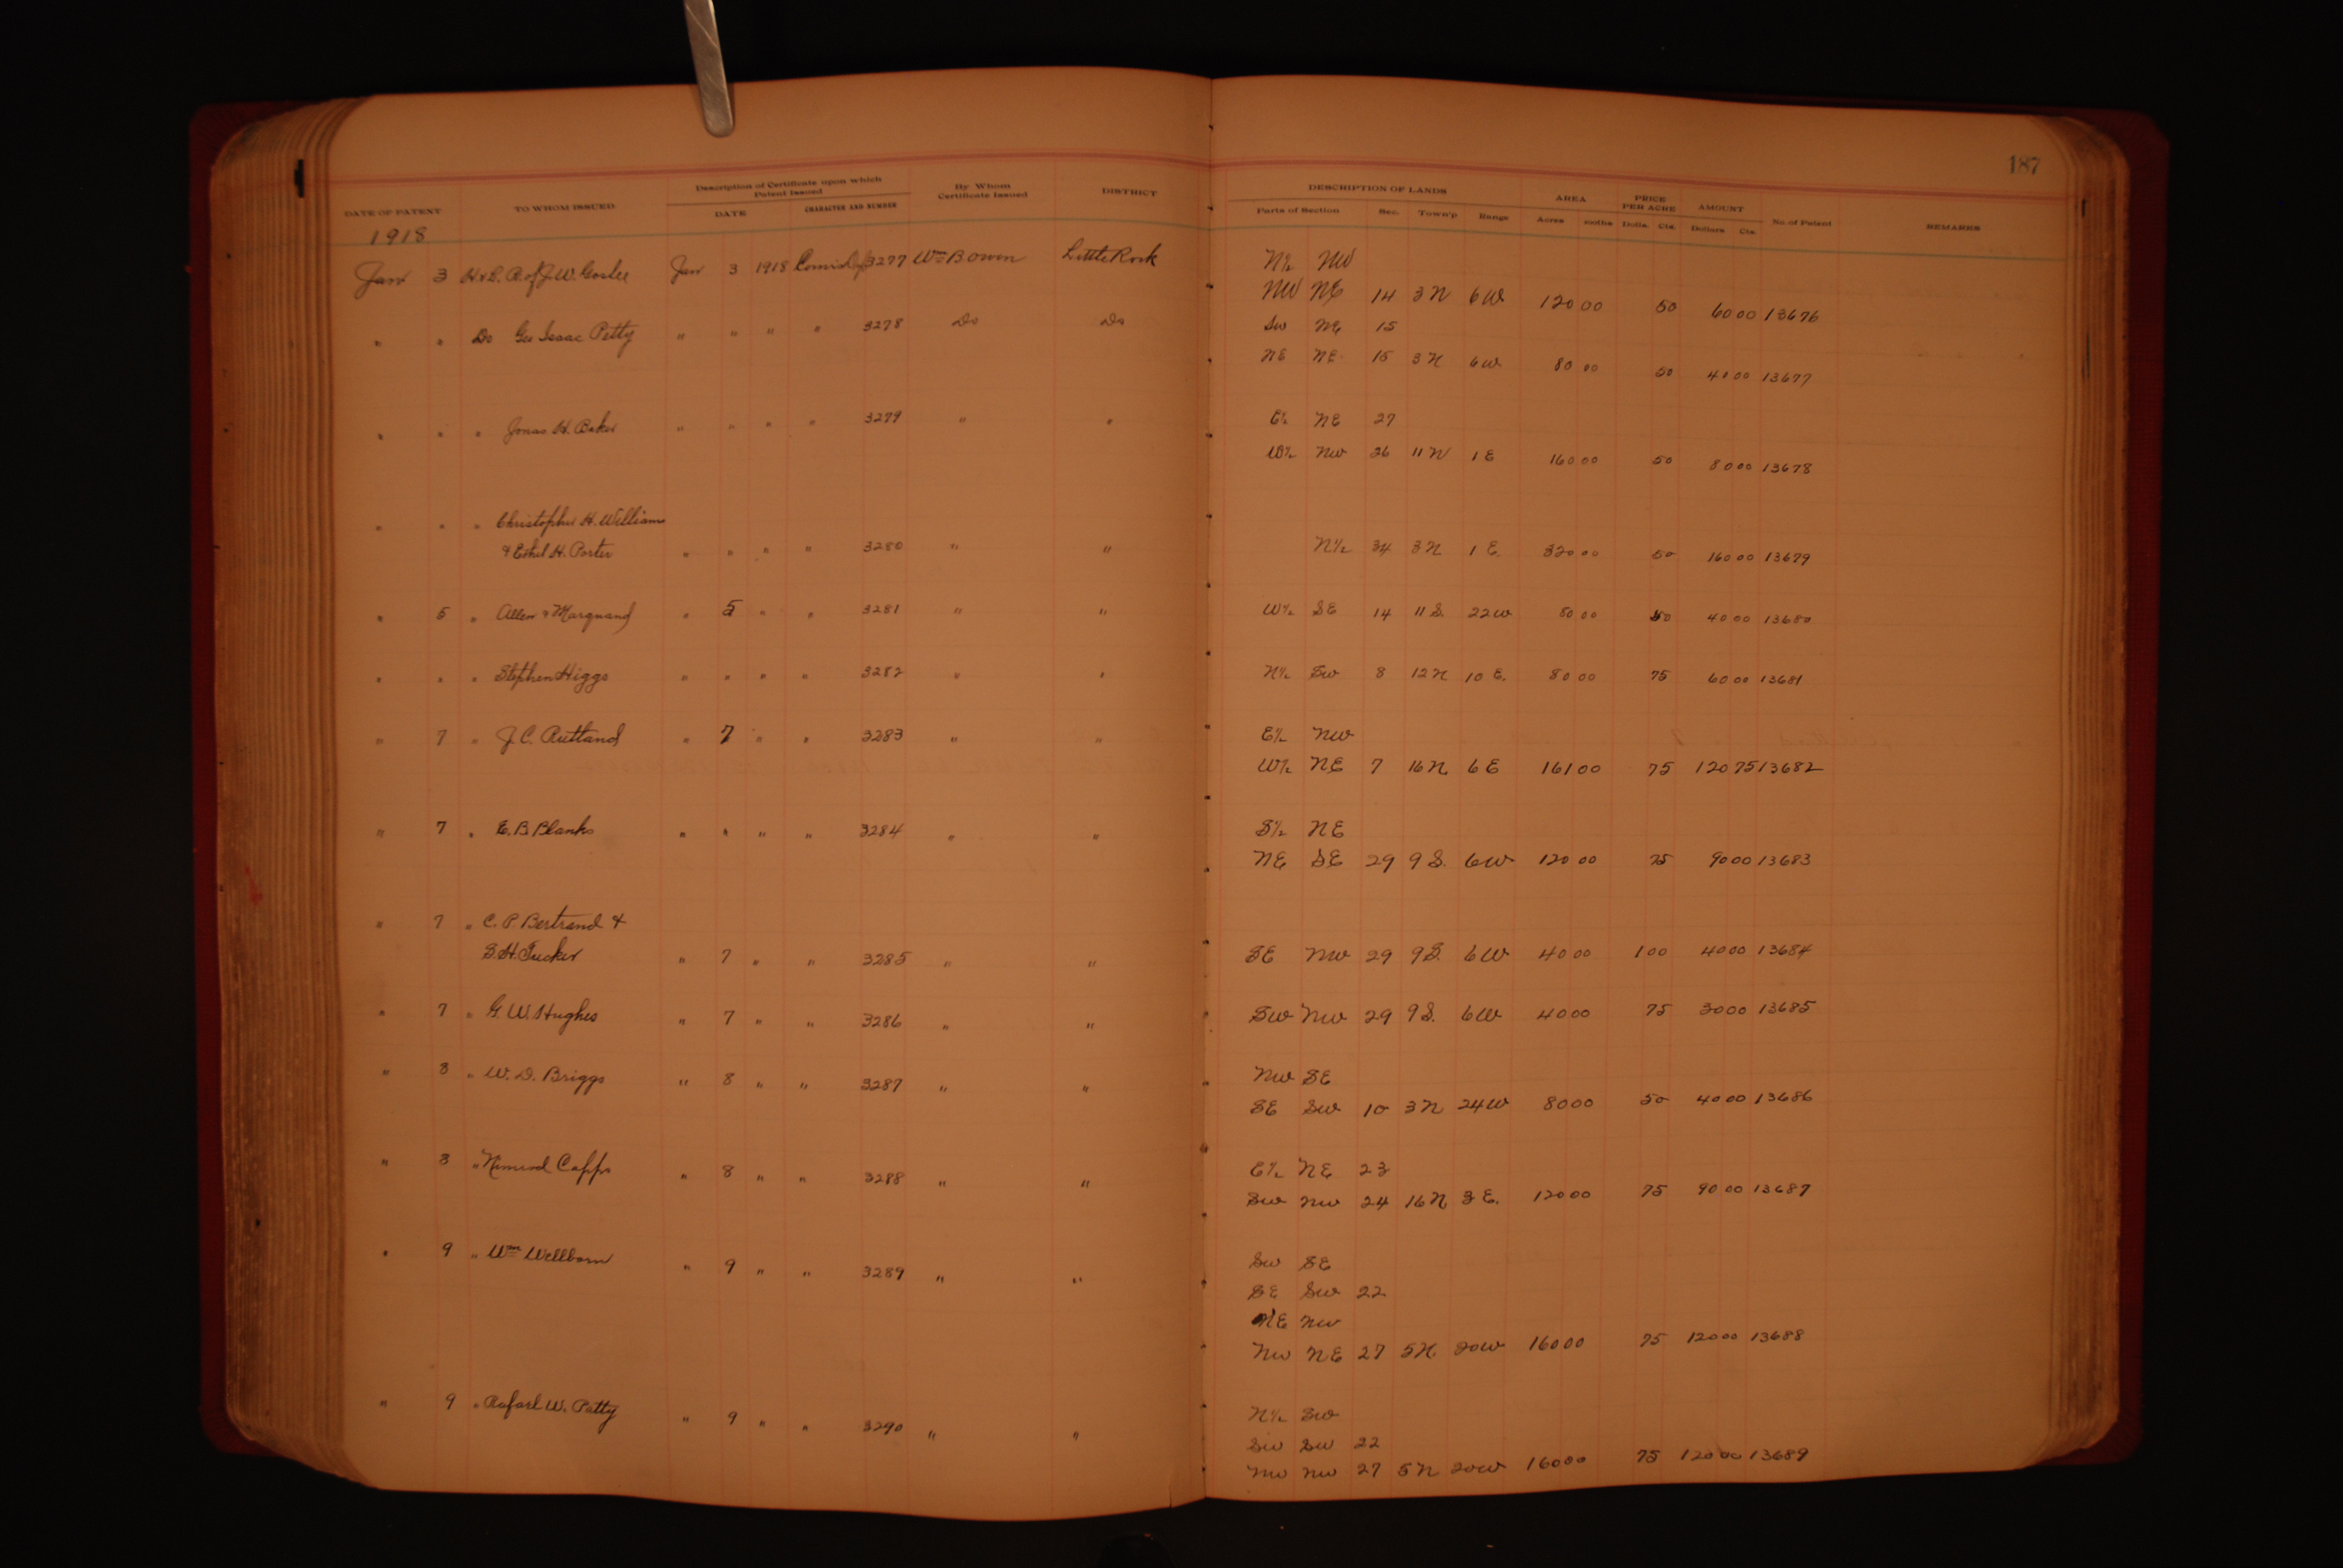 187
DATE OF PATENT TO WHOM ISSUED Description of Certificate upon which Patent Issued DATE CHARACTER AND NUMBER By Whom Certificate Issued DISTRICT DESCRIPTION OF LANDS Parts of Section Sec. Town'p Range AREA Acres PRICE PER ACRE Dolls. Cts. AMOUNT Dollars Cts. No. of Patent REMARKS
1918
Jan 3 of J. W. Goslee Jan 3 1918 3277 Wm Bowen Little Rock N½ NW
NW NE 14 3N 6W 120 00 50 60 00 13676
" " Do Geo Isaac Petty " " " " 3278 Do Do SW NE 15
NE NE 15 3N 6W 80 00 50 40 00 13677
" " " Jonas H. Baker " " " " 3279 " " E½ NE 27
W½ NW 26 11N 1E 160 00 50 80 00 13678
" " " Christopher H. Williams
& Ethel H. Porter " " " " 3280 " " N½ 34 3N 1E. 320 00 50 160 00 13679
" 5 " Allen & Marquand " 5 " " 3281 " " W½ SE 14 11S. 22W 80 00 50 40 00 13680
" " " Stephen Higgs " " " " 3282 " " N½ SW 8 12N 10E. 80 00 75 60 00 13681
" 7 " J. C. Rutland " 7 " " 3283 " " E½ NW
W½ NE 7 16N 6E 161 00 75 120 75 13682
" 7 " E. B. Blanks " " " " 3284 " " S½ NE
NE SE 29 9S. 6W 120 00 75 90 00 13683
" 7 " C. P. Bertrand &
S. H. Tucker " 7 " " 3285 " " SE NW 29 9S. 6W 40 00 1 00 40 00 13684
" 7 " G. W. Hughes " 7 " " 3286 " " SW NW 29 9S. 6W 40 00 75 30 00 13685
" 8 " W. D. Briggs " 8 " " 3287 " " NW SE
SE SW 10 3N 24W 80 00 50 40 00 13686
" 8 " Nimrod Capps " 8 " " 3288 " " E½ NE 23
SW NW 24 16N 3E. 120 00 75 90 00 13687
" 9 " Wm Wellborn " 9 " " 3289 " " SW SE
SE SW 22
NE NW
NW NE 27 5N. 20W 160 00 75 120 00 13688
" 9 " Rafael W. Patty " 9 " " 3290 " " N½ SW
SW SW 22
NW NW 27 5N 20W 160 00 75 120 00 13689